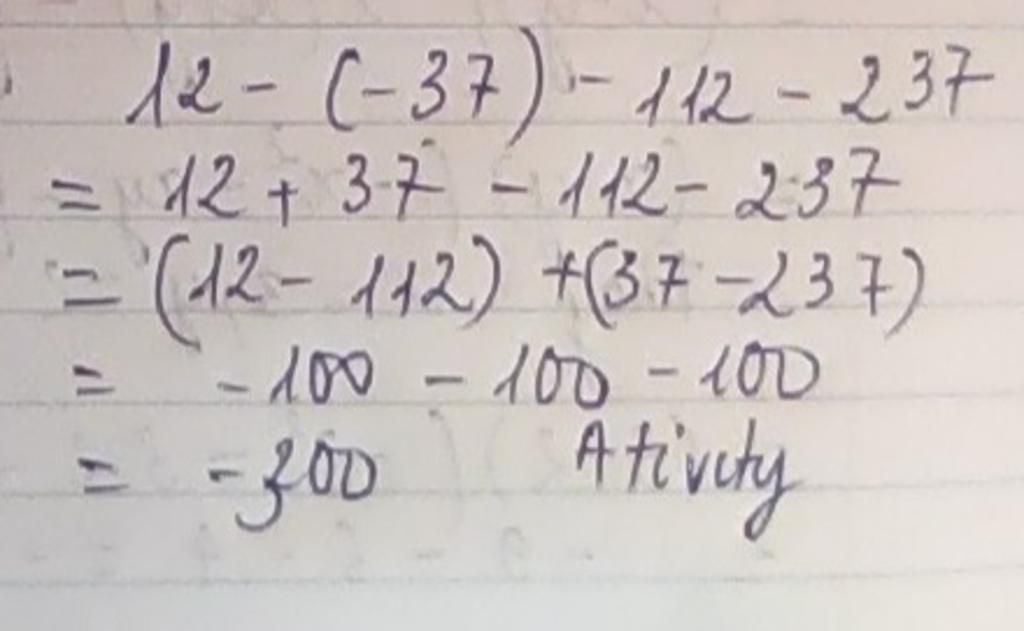 12 - (-37) - 112 - 237
= 12 + 37 - 112 - 237
= (12 - 112) + (37 - 237)
= - 100 - 100 - 100
= - 300 Ativity